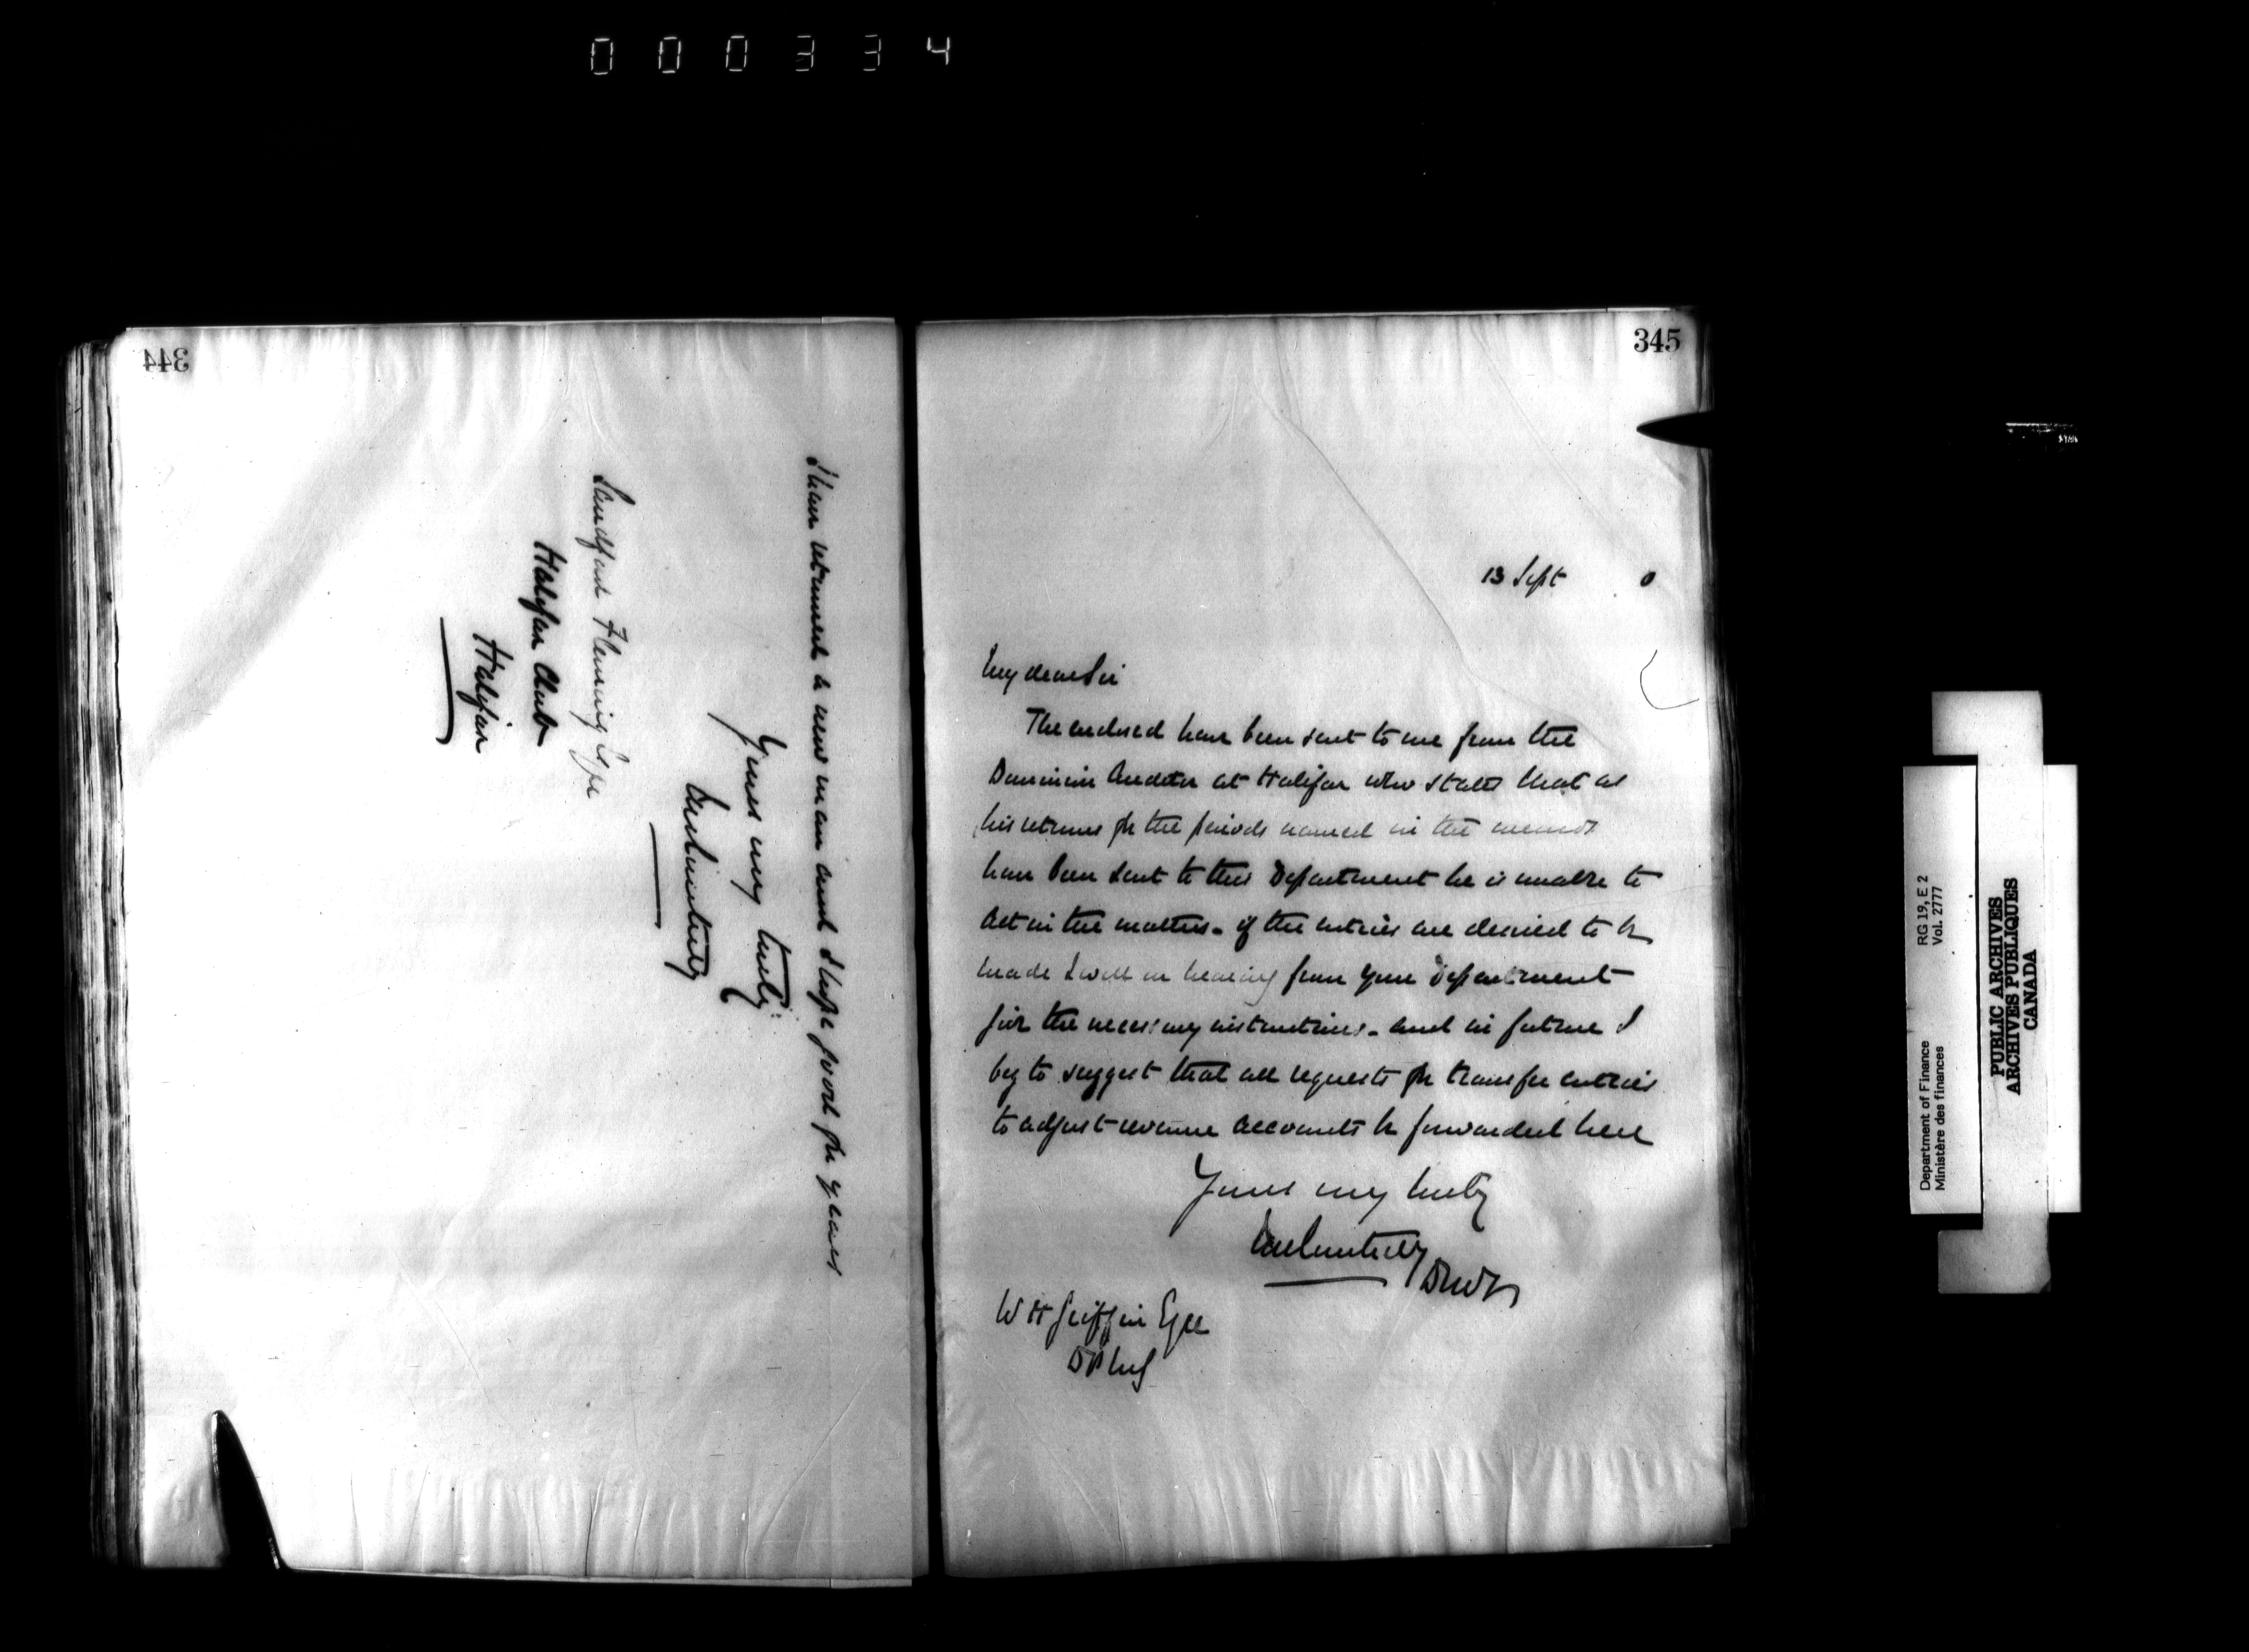 000334
344
I have returned a new man and I hope good for years
Yours very truly
JM Courtney
Sandford Fleming Esqre
Halifax Club
Halifax
345
13 Sept 0
My dear Sir
The enclosed have been sent to me from the
Dominion Auditor at Halifax who states that as
his returns for the periods named in the memos
have been sent to this Department he is unable to
act in the matters - if the entries are desired to be
made I will on hearing from your Department
give the necessary instructions - and in future I
beg to suggest that all requests for transfer entries
to adjust revenue accounts be forwarded here
Yours very truly
JM Courtney
DMF
W H Griffin Esqre
DPMG
RG 19, E 2
Vol. 2777
Department of Finance
Ministère des finances
PUBLIC ARCHIVES
ARCHIVES PUBLIQUES
CANADA